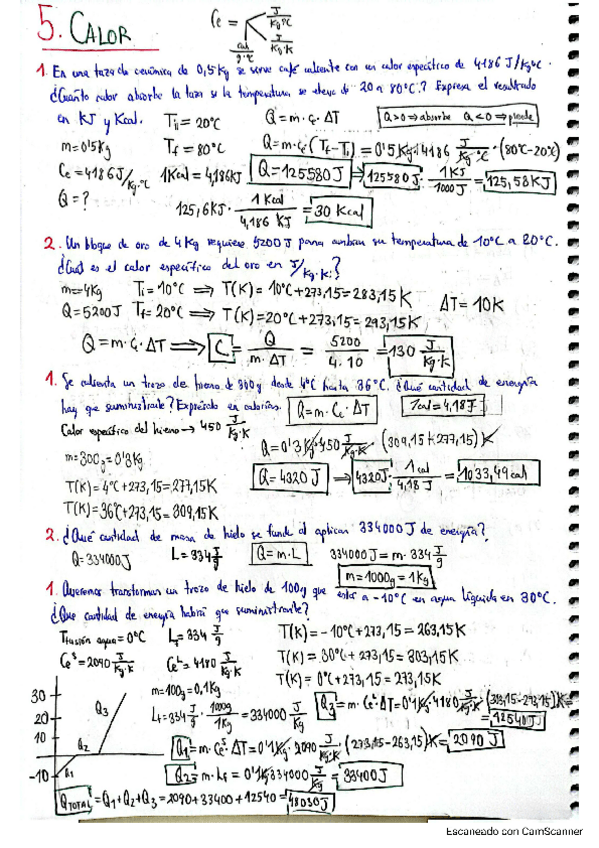 5. CALOR
Ce = J/Kg·ºC
cal/g·ºC J/Kg·K
1. En una taza de cerámica de 0,5Kg se sirve café caliente con un calor específico de 4186 J/Kg·ºC.
¿Cuánto calor absorbe la taza si la temperatura se eleva de 20 a 80ºC? Expresa el resultado
en KJ y Kcal. Ti = 20ºC Q=m·Ce·ΔT Q>0⇒absorbe Q<0⇒pierde
m=0'5Kg Tf = 80ºC Q=m·Ce(Tf-Ti)=0'5Kg·4186 J/Kg·ºC·(80ºC-20ºC)
Ce=4186J/Kg·ºC 1Kcal=4,186KJ Q=125580J ⇒ 125580J · 1KJ/1000J = 125,58KJ
Q=? 125,6KJ · 1Kcal/4,186 KJ = 30 Kcal
2. Un bloque de oro de 4Kg requiere 5200J para cambiar su temperatura de 10ºC a 20ºC.
¿Cuál es el calor específico del oro en J/Kg·K?
m=4Kg Ti=10ºC ⇒ T(K)=10ºC+273,15=283,15K ΔT=10K
Q=5200J Tf=20ºC ⇒ T(K)=20ºC+273,15=293,15K
Q=m·C·ΔT ⇒ C = Q/m·ΔT = 5200/4·10 = 130 J/Kg·K
1. Se calienta un trozo de hierro de 300g desde 4ºC hasta 36ºC. ¿Qué cantidad de energía
hay que suministrarle? Exprésalo en calorías. Q=m·Ce·ΔT 1cal=4,18J
Calor específico del hierro → 450 J/Kg·K
Q=0'3Kg·450 J/Kg·K·(309,15-277,15)K
m=300g=0'3Kg
Q=4320J ⇒ 4320J · 1cal/4,18J = 1033,49cal
T(K)=4ºC+273,15=277,15K
T(K)=36ºC+273,15=309,15K
2. ¿Qué cantidad de masa de hielo se funde al aplicar 334000J de energía?
Q=334000J L=334 J/g Q=m·L 334000J=m·334 J/g
m=1000g=1Kg
1. Queremos transformar un trozo de hielo de 100g que está a -10ºC en agua líquida en 30ºC.
¿Qué cantidad de energía habrá que suministrarle?
Tfusión agua=0ºC Lf=334 J/g T(K)=-10ºC+273,15=263,15K
Ceˢ=2090 J/Kg·K Ceᴸ=4180 J/Kg·K T(K)=30ºC+273,15=303,15K
T(K)=0ºC+273,15=273,15K
30
20
10
-10
Q1
Q2
Q3
m=100g=0,1Kg Q3=m·Ceᴸ·ΔT=0'1Kg·4180 J/Kg·K·(303,15-273,15)K=
=12540J
Lf=334 J/g · 1000g/1Kg = 334000 J/Kg
Q1=m·Ceˢ·ΔT=0'1Kg·2090 J/Kg·K·(273,15-263,15)K=2090J
Q2=m·Lf=0'1Kg·334000 J/Kg=33400J
QTOTAL=Q1+Q2+Q3=2090+33400+12540=48030J
Escaneado con CamScanner